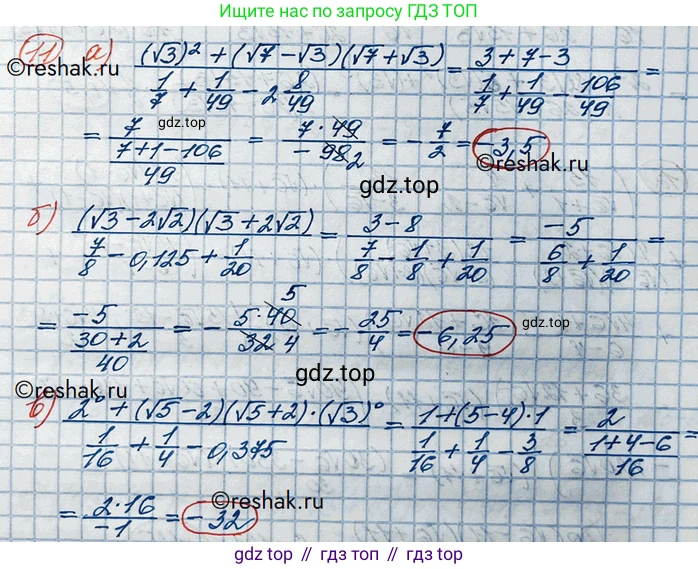 решение по запросу ГДЗ ТОП
11) а) ((√3)² + (√7 − √3)(√7 + √3))/(1/7 + 1/49 − 2 8/49) = (3 + 7 − 3)/(1/7 + 1/49 − 106/49) =
©reshak.ru
= 7/((7 + 1 − 106)/49) = (7 · 49)/(−98 2) = −7/2 = −3,5
gdz.top
©reshak.ru
gdz.top
б) ((√3 − 2√2)(√3 + 2√2))/(7/8 − 0,125 + 1/20) = (3 − 8)/(7/8 − 1/8 + 1/20) = −5/(6/8 + 1/20) =
= −5/((30 + 2)/40) = −(5 · 40 5)/(32 4) = −25/4 = −6,25
gdz.top
©reshak.ru
в) (2⁰ + (√5 − 2)(√5 + 2) · (√3)⁰)/(1/16 + 1/4 − 0,375) = (1 + (5 − 4) · 1)/(1/16 + 1/4 − 3/8) = 2/((1 + 4 − 6)/16) =
= (2 · 16)/(−1) = −32
©reshak.ru
gdz.top // гдз топ // gdz.top